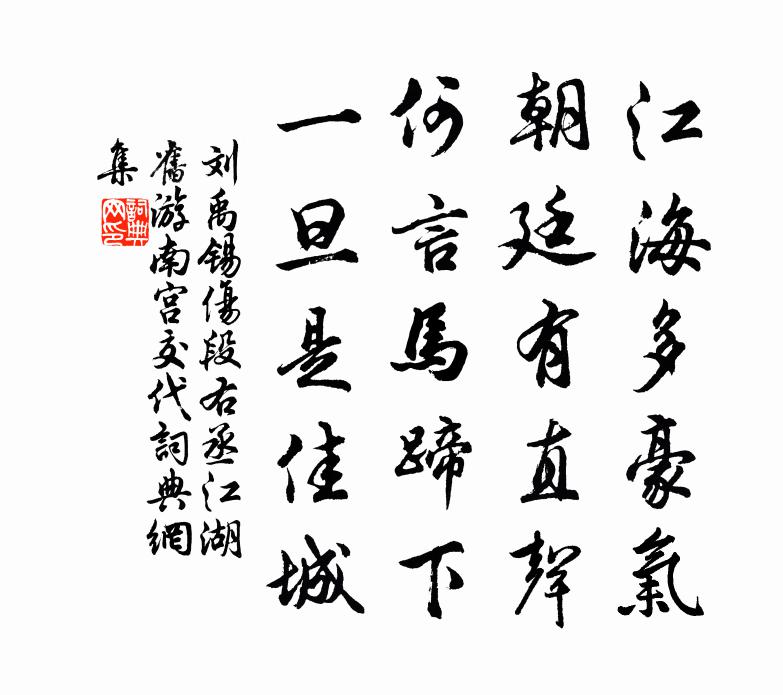 江海多豪氣
朝廷有直聲
何言馬蹄下
一旦是佳城
刘禹锡傷段右丞江湖
舊游南宫交代詞典網
集
詞典
网印